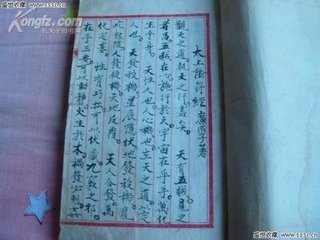 盛世收藏 www.sssc.cn
盛世收藏 www.sssc.cn
KongfZ.com
孔夫子旧书网
太上陰符經 廣成子著
觀天之道執天之行盡矣。天有五賊見之
者昌五賊在心施行於天宇宙在乎手萬化
生乎身。天性人也人心機也立天之道以定
人也。天發殺機星辰隕伏地發殺機龍
蛇起陸人發殺機天地反覆。天人合發萬
化定基。性有巧拙可以伏藏九竅之邪
在乎三要可以動靜火生於木禍發必剋姦
盛世收藏 www.sssc.cn
盛世收藏 www.sssc.cn